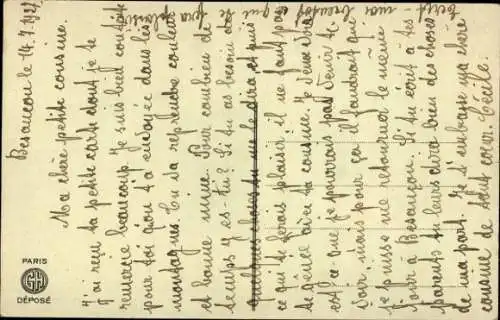 Besançon le 14.7.1927
Ma chère petite cousine.
J'ai reçu ta petite carte dont je te
remercie beaucoup. Je suis bien contente
pour toi qu'on t'a envoyée dans les
montagnes tu va reprendre couleur
et bonne mine. Pour combien de
temps y es-tu? Si tu as besoin de
quelques choses tu me le dira et puis
ce qui te ferais plaisir il ne faut pas
se gêner avec ta cousine. Je veux
est ce que je pourrais pas venir te
voir, mais pour ça il faudrait que
je puisse me retourner le même
jour à Besançon. Si tu écrit à tes
parents tu leurs dira bien des choses
de ma part. Je t'embrasse ma chère
cousine de tout cœur Cécile.
qui te
PARIS
DÉPOSÉ